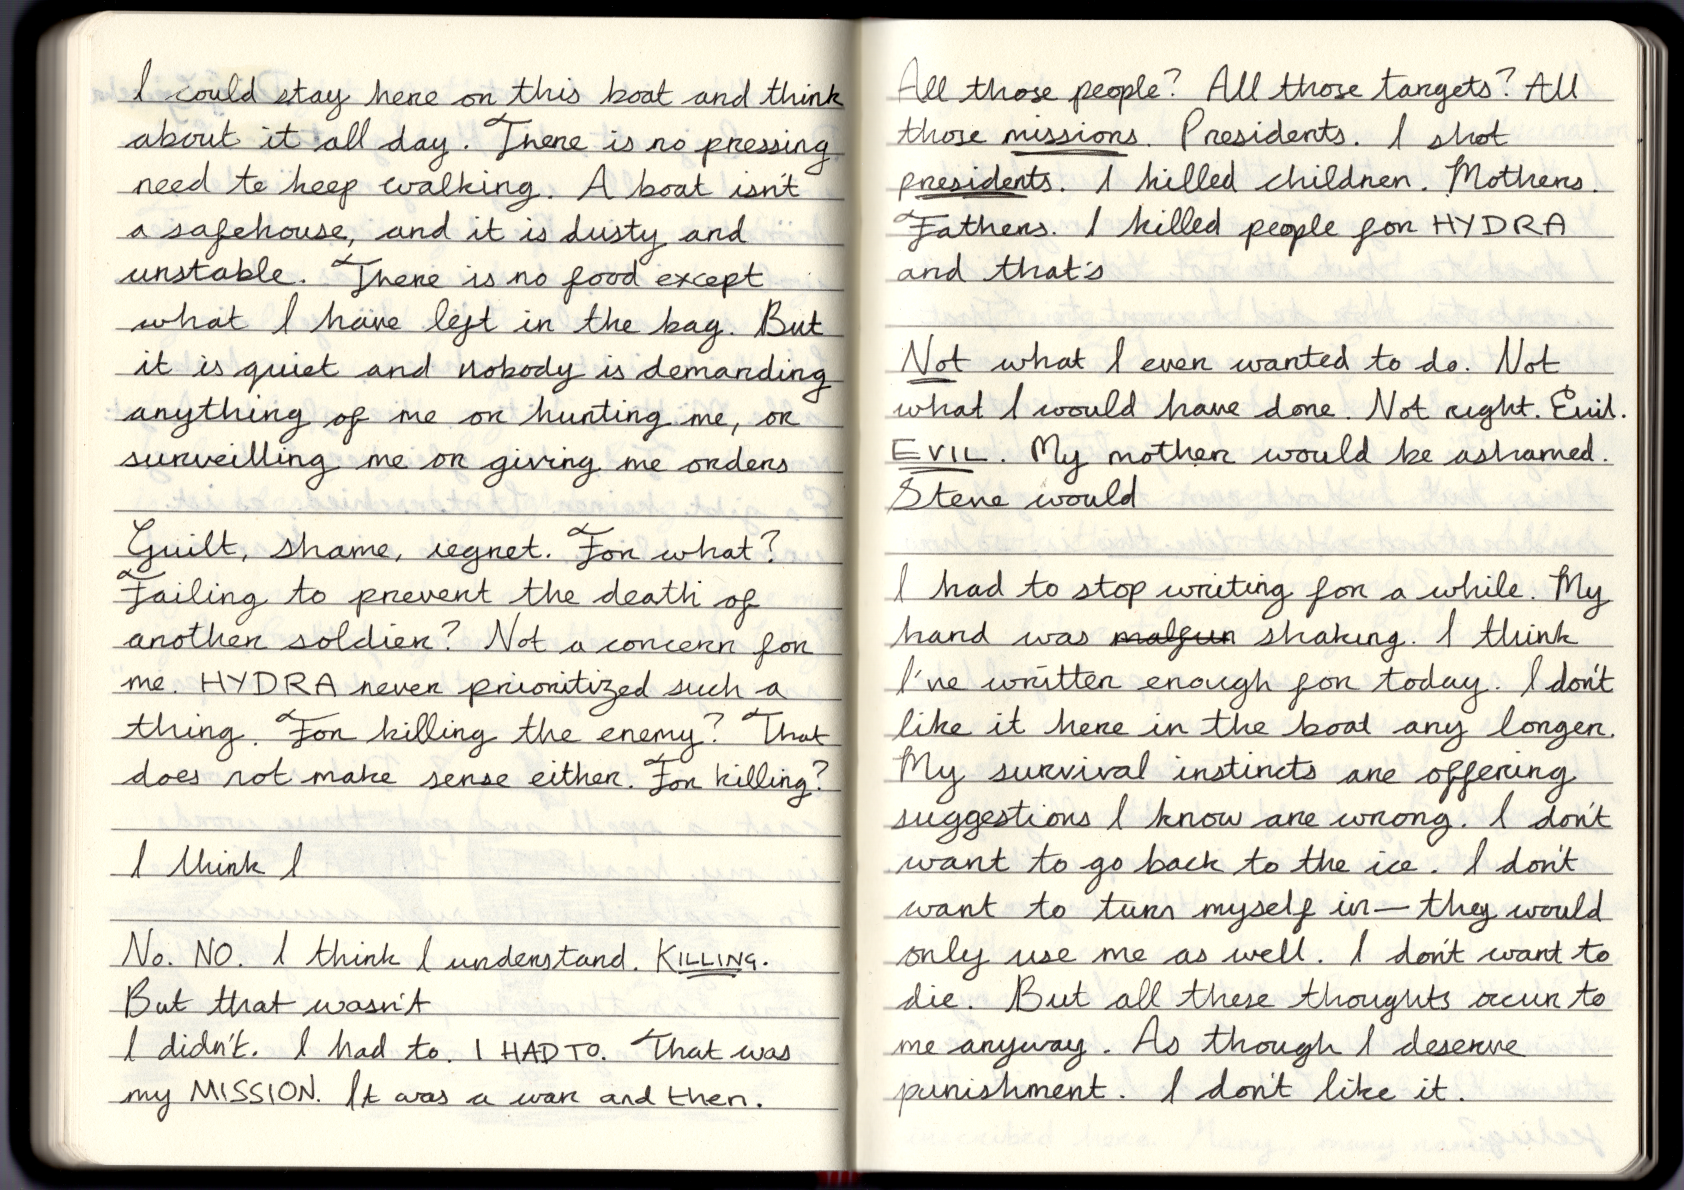 I could stay here on this boat and think
about it all day. There is no pressing
need to keep walking. A boat isn't
a safehouse, and it is dusty and
unstable. There is no food except
what I have left in the bag. But
it is quiet and nobody is demanding
anything of me or hunting me, or
surveilling me or giving me orders
Guilt, shame, regret. For what?
Failing to prevent the death of
another soldier? Not a concern for
me. HYDRA never prioritized such a
thing. For killing the enemy? That
does not make sense either. For killing?
I think I
No. NO. I think I understand. KILLING.
But that wasn't
I didn't. I had to. I HAD TO. That was
my MISSION. It was a war and then.
All those people? All those targets? All
those missions. Presidents. I shot
presidents. I killed children. Mothers.
Fathers. I killed people for HYDRA
and that's
Not what I ever wanted to do. Not
what I would have done. Not right. Evil.
EVIL. My mother would be ashamed.
Steve would
I had to stop writing for a while. My
hand was malfun shaking. I think
I've written enough for today. I don't
like it here in the boat any longer.
My survival instincts are offering
suggestions I know are wrong. I don't
want to go back to the ice. I don't
want to turn myself in—they would
only use me as well. I don't want to
die. But all these thoughts occur to
me anyway. As though I deserve
punishment. I don't like it.